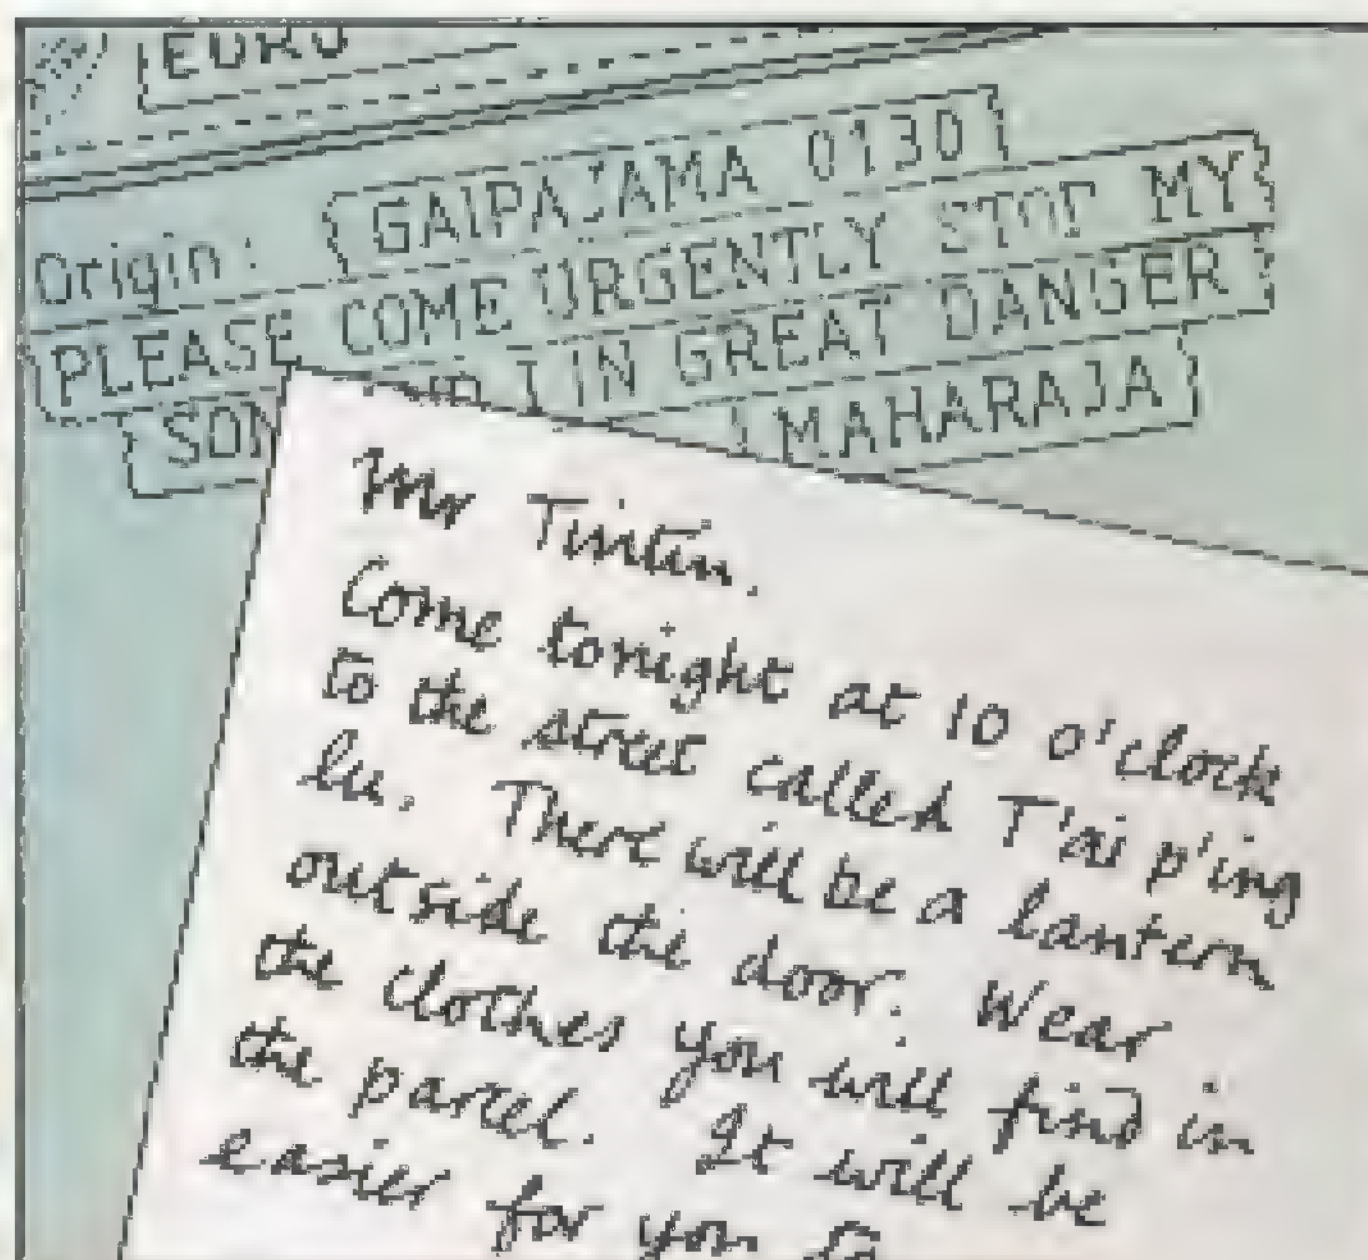 EURO
Origin: GAIPAJAMA 0130
PLEASE COME URGENTLY STOP MY
SON IN GREAT DANGER
MAHARAJA
Mr Tintin.
Come tonight at 10 o'clock
to the street called T'ai p'ing
lu. There will be a lantern
outside the door. Wear
the clothes you will find in
the parcel. It will be
easier for you to